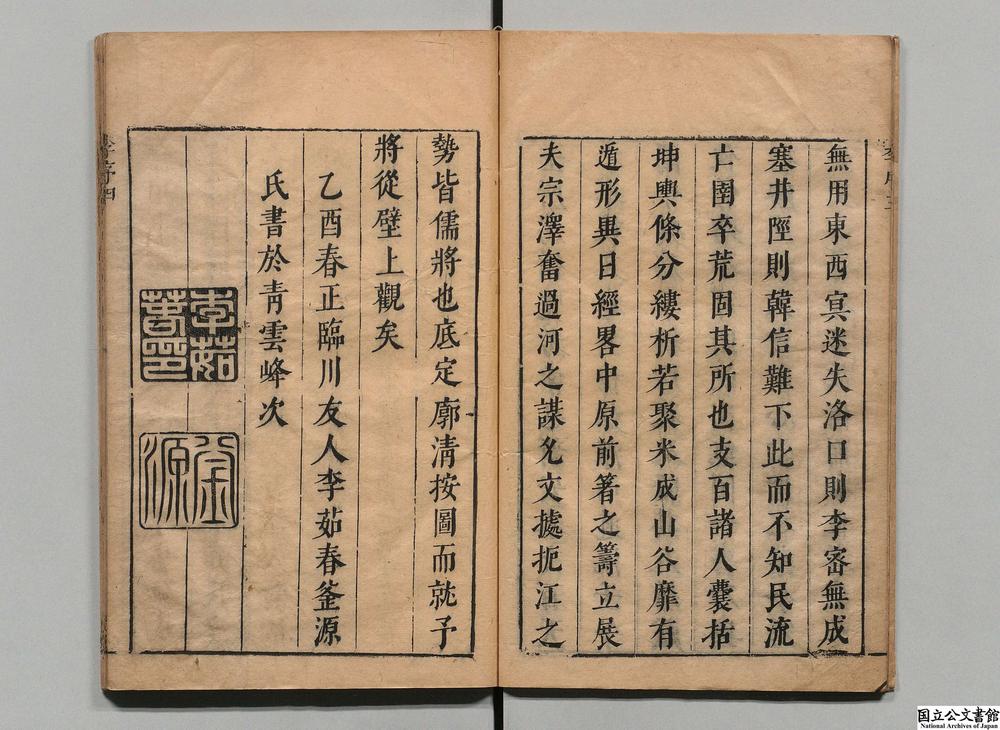 無用東西冥迷失洛口則李密無成
塞井陘則韓信難下此而不知民流
亡圉卒荒固其所也支百諸人囊括
坤輿條分縷析若聚米成山谷靡有
遁形異日經畧中原前箸之籌立展
夫宗澤奮過河之謀允文據扼江之
勢皆儒將也底定廓清按圖而就予
將從壁上觀矣
乙酉春正臨川友人李茹春釜源
氏書於青雲峰次
李茹春印
釜源
李序四
国立公文書館
National Archives of Japan